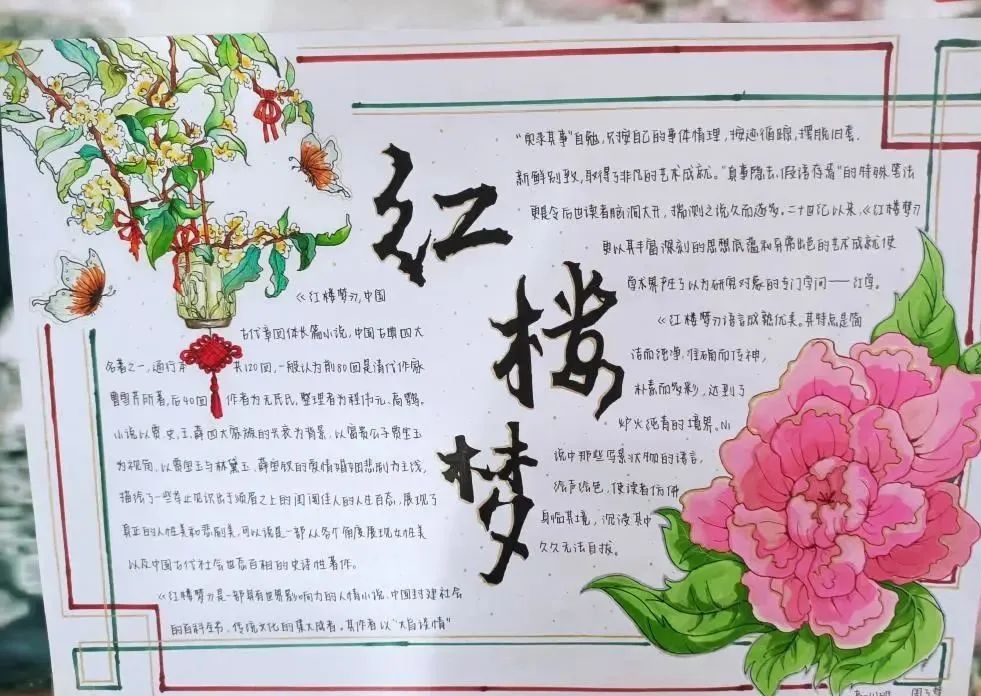 红楼梦
《红楼梦》,中国
古代章回体长篇小说,中国古典四大
名著之一,通行本共120回,一般认为前80回是清代作家
曹雪芹所著,后40回作者为无名氏,整理者为程伟元、高鹗。
小说以贾、史、王、薛四大家族的兴衰为背景,以富贵公子贾宝玉
为视角,以贾宝玉与林黛玉、薛宝钗的爱情婚姻悲剧为主线,
描绘了一些举止见识出于须眉之上的闺阁佳人的人生百态,展现了
真正的人性美和悲剧美,可以说是一部从各个角度展现女性美
以及中国古代社会世态百相的史诗性著作。
《红楼梦》是一部具有世界影响力的人情小说,中国封建社会
的百科全书,传统文化的集大成者。其作者以“大旨谈情”
“实录其事”自勉,只按自己的事体情理,按迹循踪,摆脱旧套,
新鲜别致,取得了非凡的艺术成就。“真事隐去,假语存焉”的特殊笔法
更是令后世读者脑洞大开,揣测之说久而遂多。二十世纪以来,《红楼梦》
更以其丰富深刻的思想底蕴和异常出色的艺术成就使
学术界产生了以为研究对象的专门学问——红学。
《红楼梦》语言成熟优美。其特点是简
洁而纯净,准确而传神,
朴素而多彩,达到了
炉火纯青的境界。小
说中那些写景状物的语言,
绘声绘色,使读者仿佛
身临其境,沉浸其中
久久无法自拔。